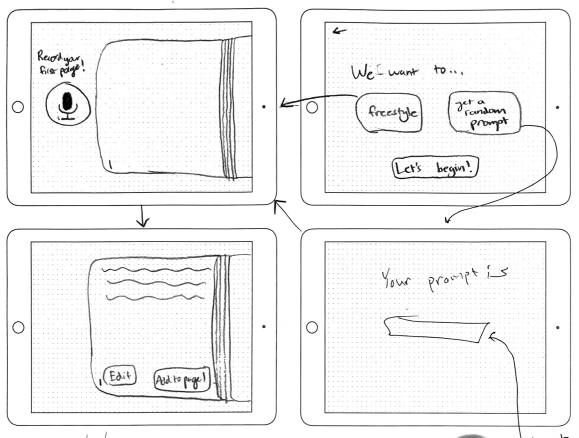 Record your
first page!
1
We want to...
freestyle
get a
random
prompt
Let's begin!
1
Edit
Add to page!
Your prompt is